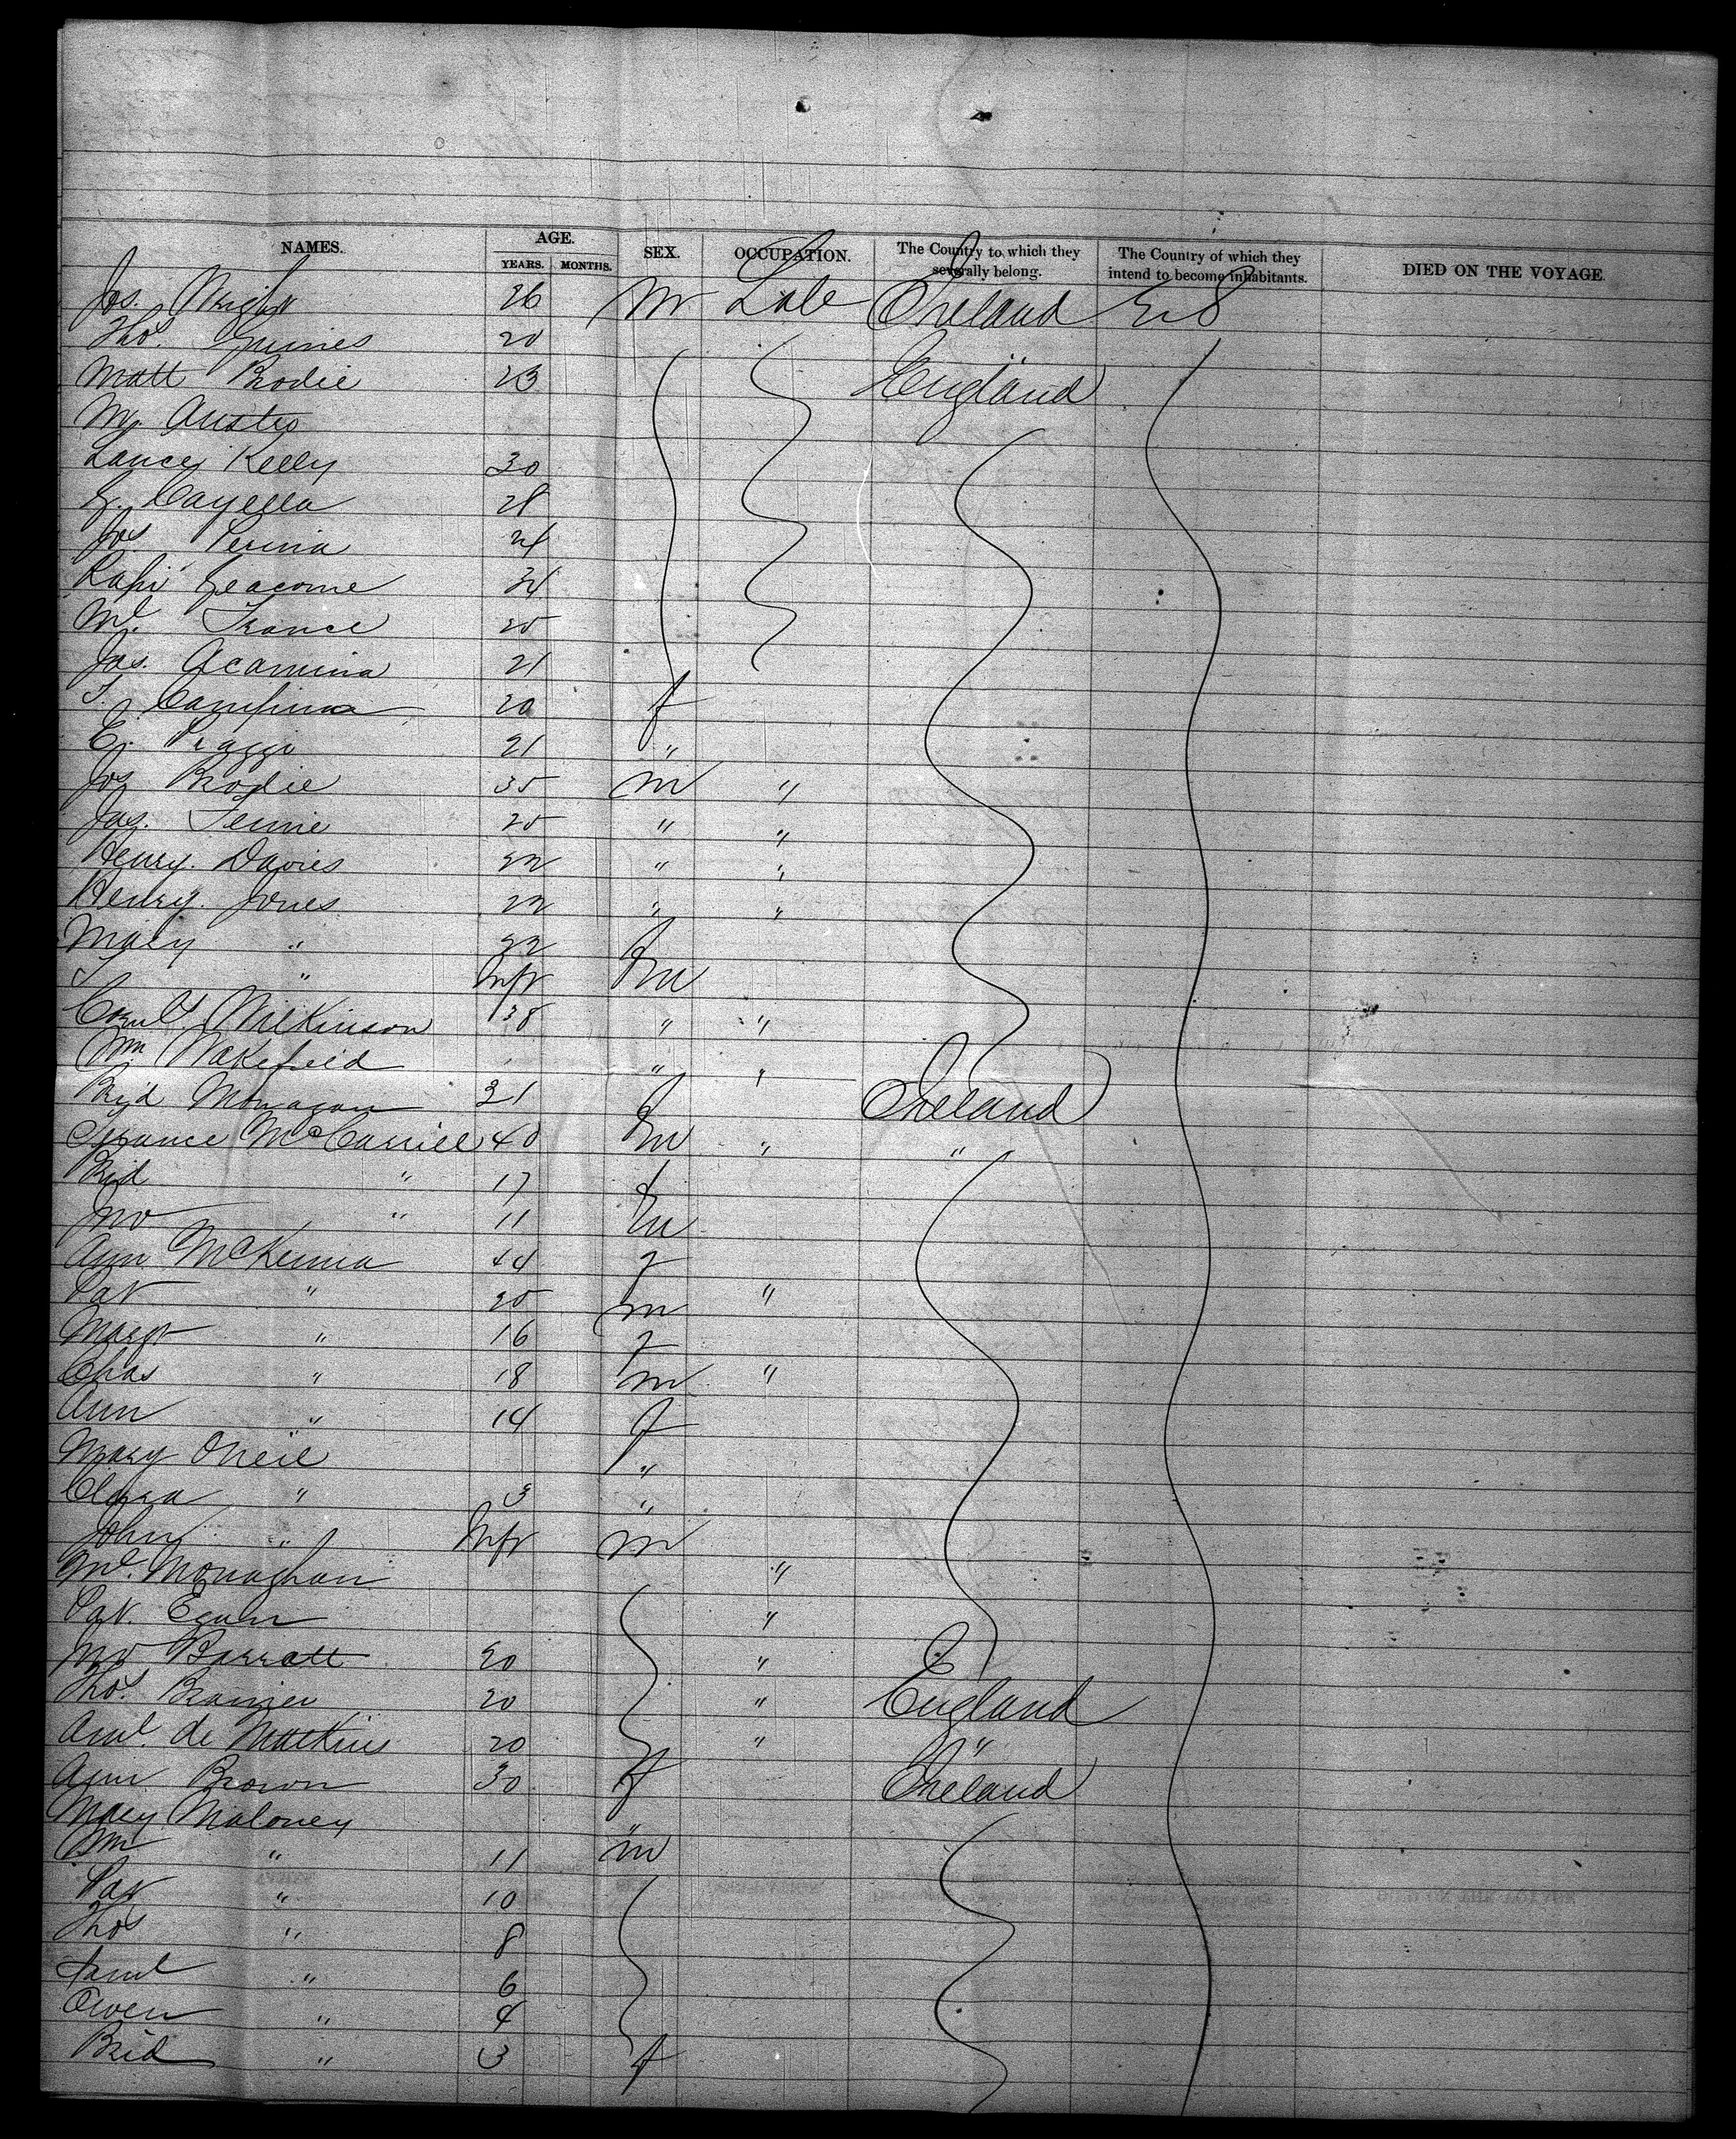 NAMES. AGE. SEX. OCCUPATION. The Country to which they severally belong. The Country of which they intend to become inhabitants. DIED ON THE VOYAGE.
YEARS. MONTHS.
Jos. Wright 26 M Lab Ireland U S
Thos. Grimes 20
Matt Brodie 23 England
Lancy Kelly 30
G. Cayella 28
Jos Perina 24
Rafi Geacome 34
Ml. France 25
Jas. Acamina 21
T. 20 f
E. Raggi 21 "
Jos Brodie 35 m "
Jas. 25 " "
Henry. Davies 22 " "
Henry. Jones 22 " "
Mary " 22 f
" Inft m
Wilkinson 38 " "
Wm Wakefield " "
Brid Monagan 21 f Ireland
Terance McCarriel 40 m " "
Brid " 17 f
Jno " 11 m
Ann McKenna 44 f
Pat " 20 m "
Margt " 16 f
Chas " 18 m "
Ann " 14 f
Mary ONeil "
Clara " 3 "
John " Inft m
Ml. Monaghan "
Pat. Egan "
Jno Barratt 20 "
Thos. 20 " England
de 20 " "
Ann Brown 30 f Ireland
Mary Maloney "
Wm " 11 m
Pat " 10
Thos " 8
Saml " 6
Owen " 4
Brid " 3 f